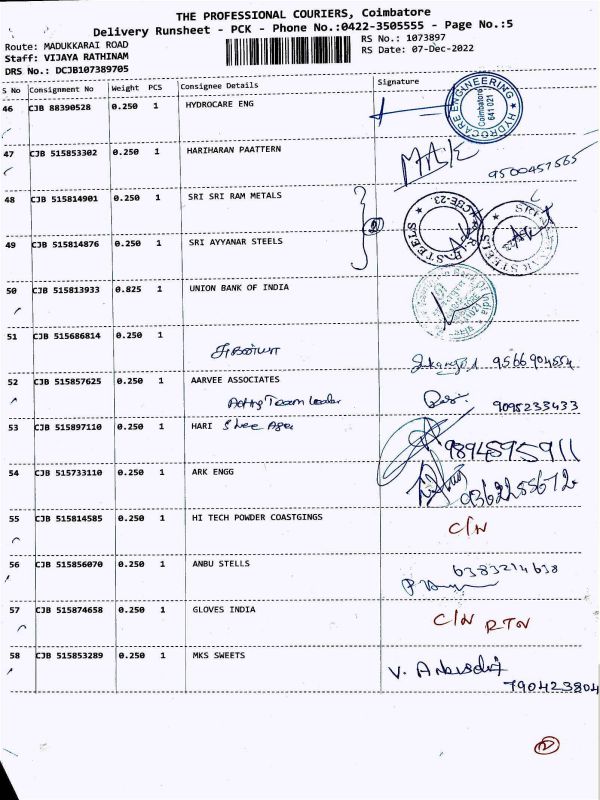 THE PROFESSIONAL COURIERS, Coimbatore
Delivery Runsheet - PCK - Phone No.:0422-3505555 - Page No.:5
Route: MADUKKARAI ROAD
RS No.: 1073897
Staff: VIJAYA RATHINAM
RS Date: 07-Dec-2022
DRS No.: DCJB107389705
S No Consignment No Weight PCS Consignee Details Signature
46 CJB 88390528 0.250 1 HYDROCARE ENG
HYDROCARE ENGINEERING
Coimbatore
641 021
47 CJB 515853302 0.250 1 HARIHARAN PAATTERN
9500457565
48 CJB 515814901 0.250 1 SRI SRI RAM METALS
49 CJB 515814876 0.250 1 SRI AYYANAR STEELS
STEELS
50 CJB 515813933 0.825 1 UNION BANK OF INDIA
51 CJB 515686814 0.250 1
9566904554
52 CJB 515857625 0.250 1 AARVEE ASSOCIATES
Team Leader
9095233433
53 CJB 515897110 0.250 1 HARI Shree
9894895911
54 CJB 515733110 0.250 1 ARK ENGG
9362255672
55 CJB 515814585 0.250 1 HI TECH POWDER COASTGINGS
C/N
56 CJB 515856070 0.250 1 ANBU STELLS
6383214638
57 CJB 515874658 0.250 1 GLOVES INDIA
C/N RTN
58 CJB 515853289 0.250 1 MKS SWEETS
V.
790423804